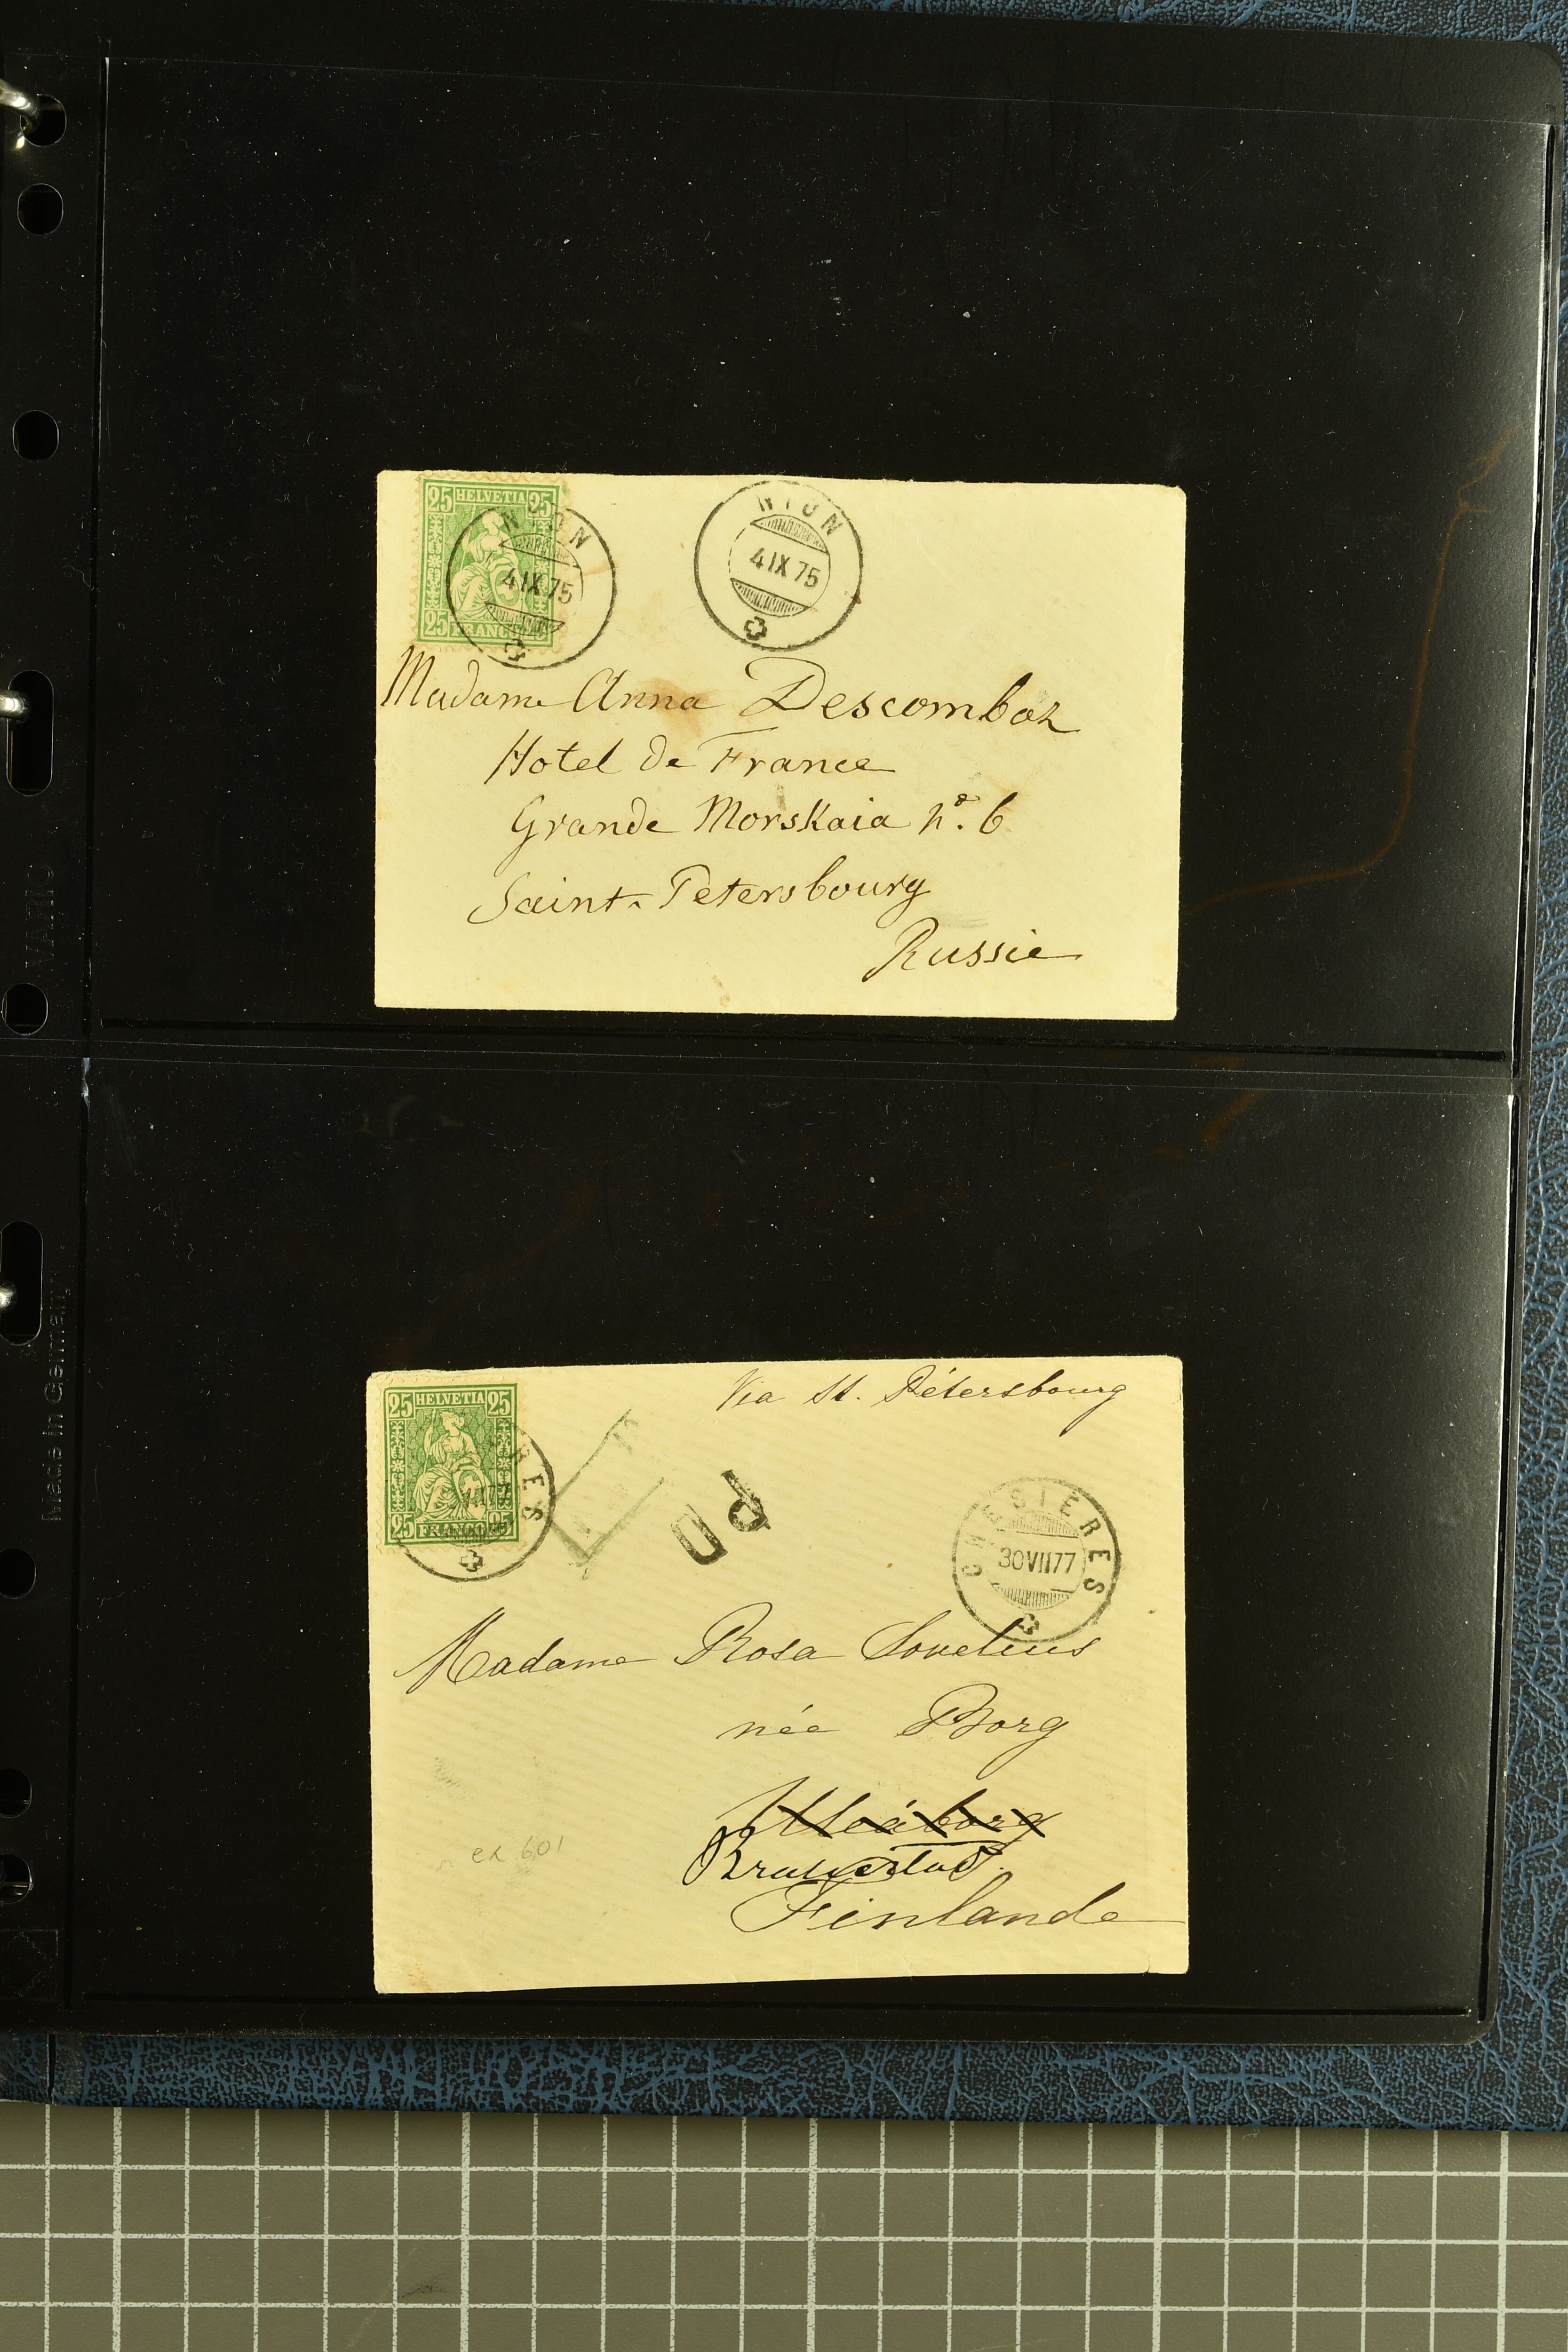 25 HELVETIA 25
25 FRANCO 25
NYON
4 IX 75
NYON
4 IX 75
Madame Anna Descombaz
Hotel de France
Grande Morskaia No. 6
Saint-Petersbourg
Russie
VARIO
Made in Germany
Via St. Pétersbourg
25 HELVETIA 25
25 FRANCO 25
RES
PD
CHESIÈRES
30 VII 77
Madame Rosa Sovelius
née Borg
Uleåborg
Brahestad.
Finlande
ex 601